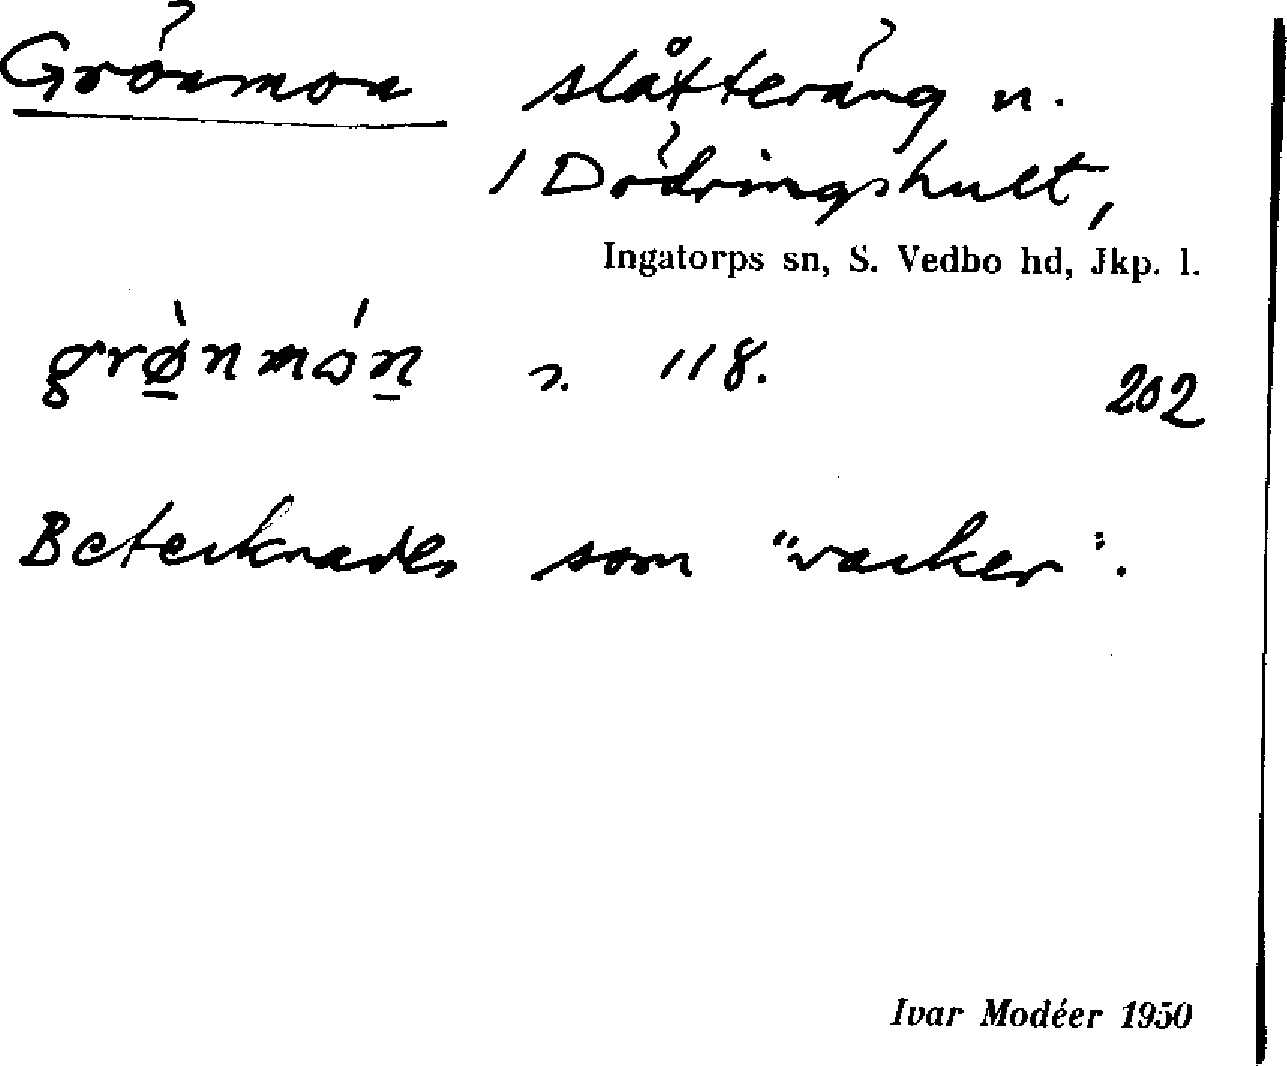 Grönmon slåtteräng n.
1 Dödringshult,
Ingatorps sn, S. Vedbo hd, Jkp. l.
grø̀nmón s. 118. 202
Betecknades som "vacker".
Ivar Modéer 1950